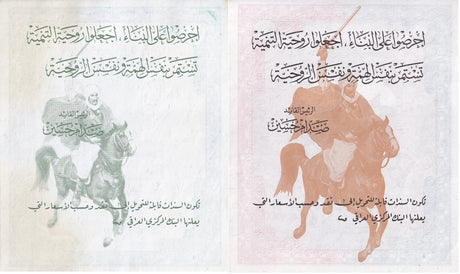 احرصوا على البناء، اجعلوا روحية التنمية
تستمر بنفس الهمة وبنفس الروحية
الرئيس القائد
صدام حسين
تكون السندات قابلة للتحويل إلى نقد وحسب الأسعار التي
يعلنها البنك المركزي العراقي
احرصوا على البناء، اجعلوا روحية التنمية
تستمر بنفس الهمة وبنفس الروحية
الرئيس القائد
صدام حسين
تكون السندات قابلة للتحويل إلى نقد وحسب الأسعار التي
يعلنها البنك المركزي العراقي